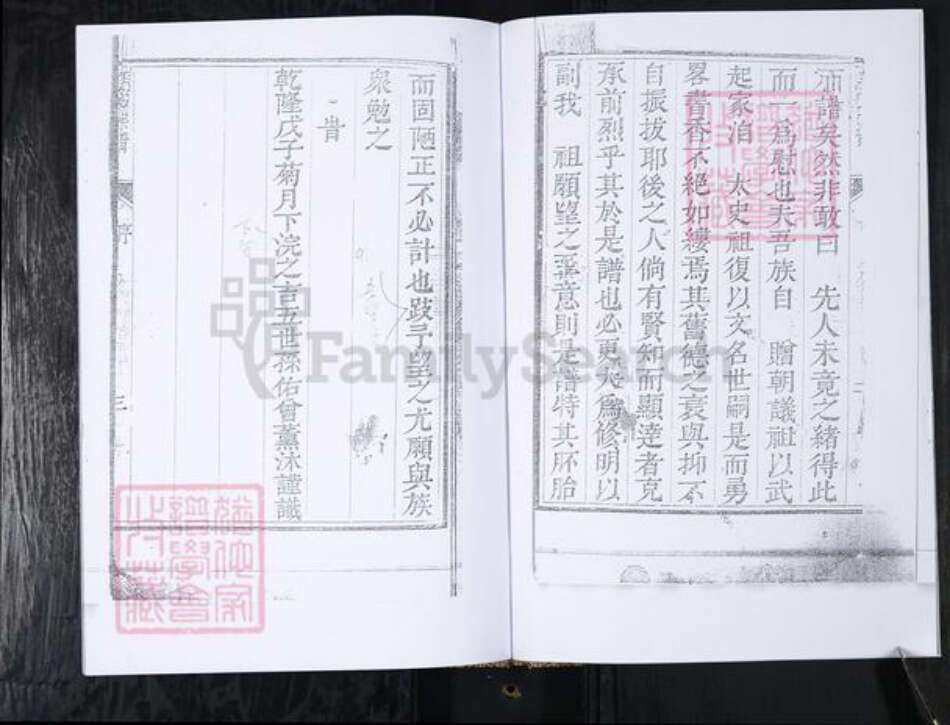 譜矣然非敢曰　先人未竟之緒得此
而一爲慰也夫吾族自　贈朝議祖以武
起家洎　太史祖復以文名世嗣是而勇
畧書香不絕如縷焉其舊德之衰與抑不
自振拔耶後之人倘有賢知而顯達者克
承前烈乎其於是譜也必更大爲修明以
副我　祖願望之至意則是譜特其胚胎
而固陋正不必計也跂予望之尤願與族
衆勉之
旹
乾隆戊子菊月下浣之吉五世孫佑曾薰沐謹識
序
三
FamilySearch